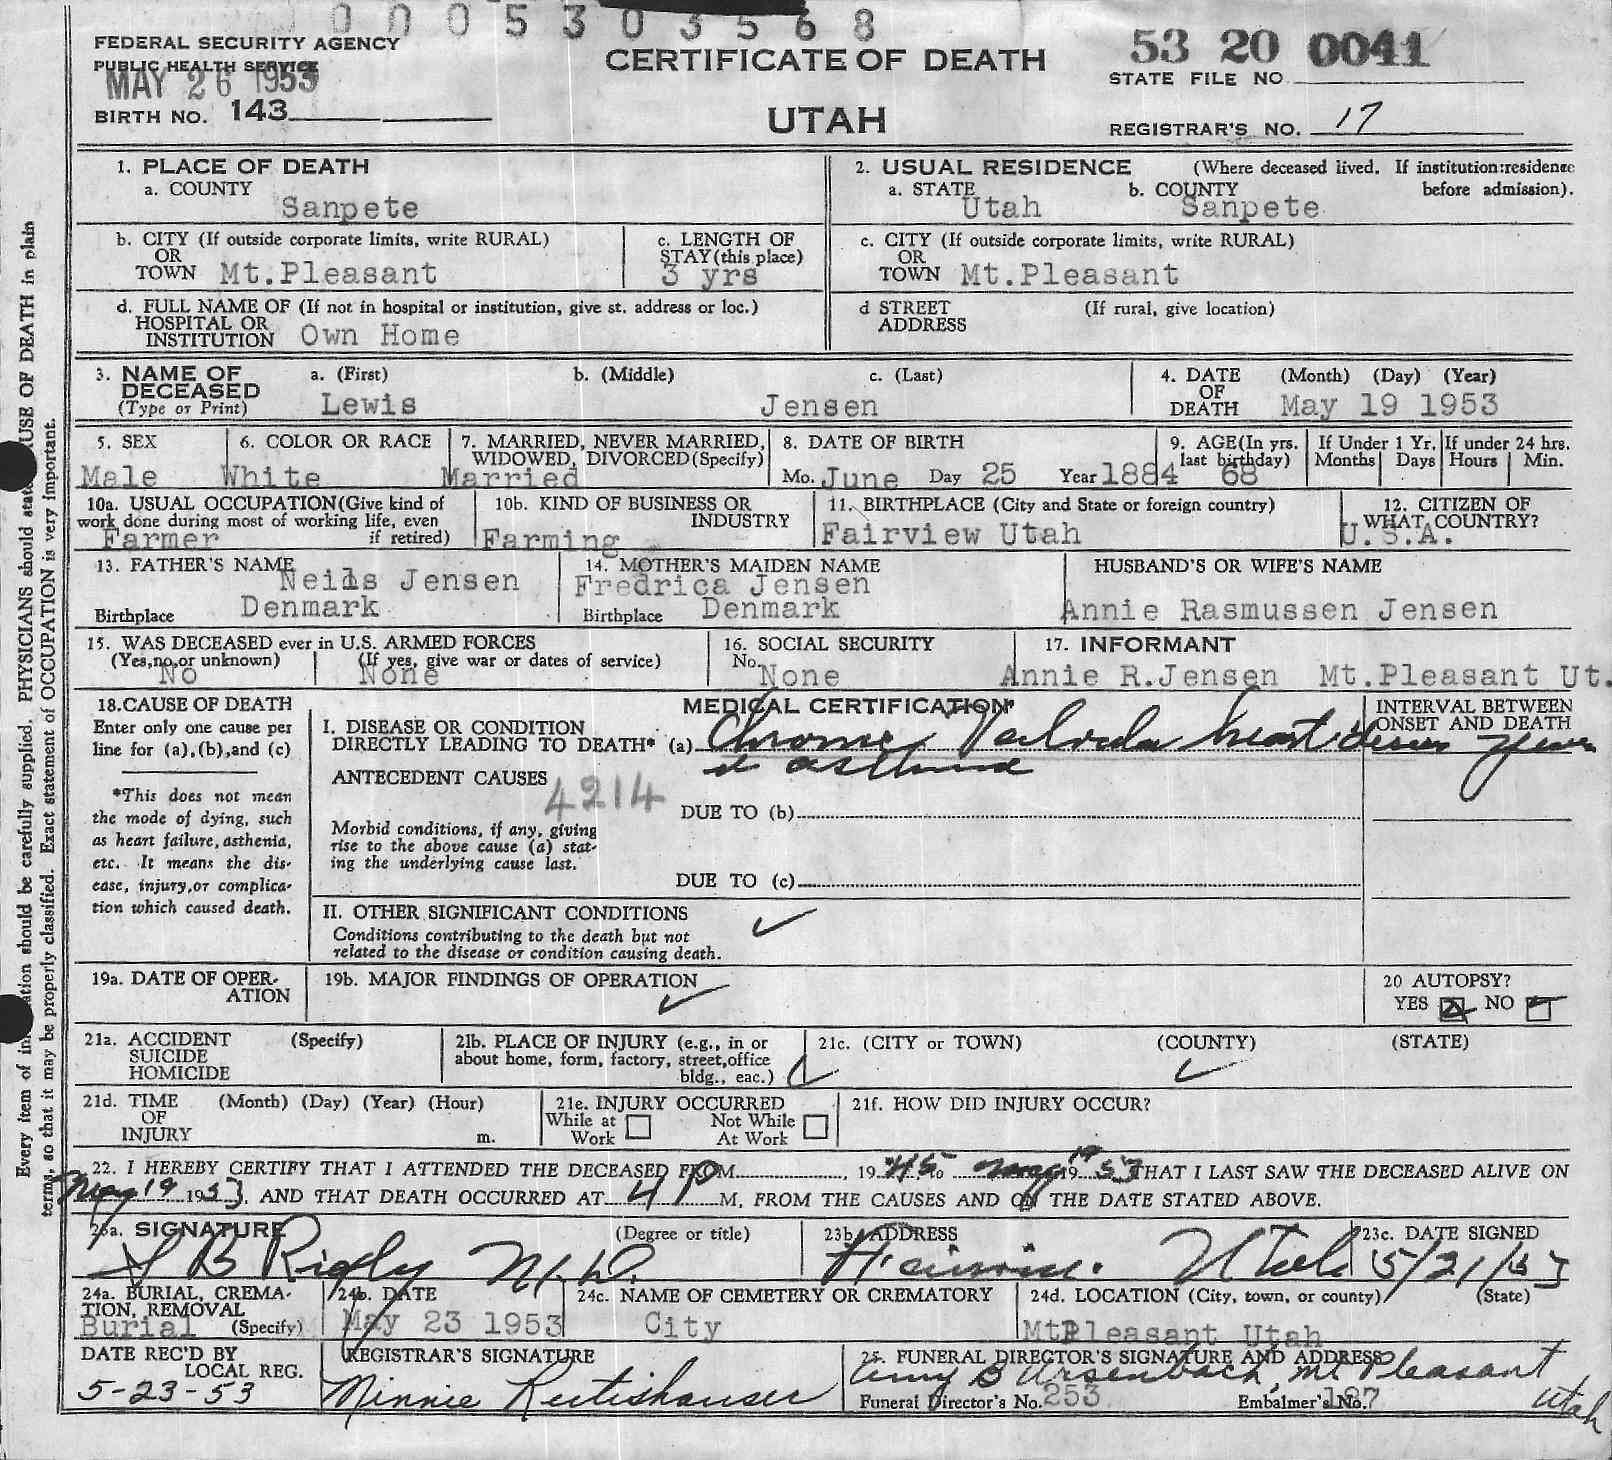 0005303568
FEDERAL SECURITY AGENCY
PUBLIC HEALTH SERVICE
MAY 26 1953
BIRTH NO. 143
CERTIFICATE OF DEATH
UTAH
53 20 0041
STATE FILE NO
REGISTRAR'S NO. 17
1. PLACE OF DEATH
a. COUNTY
Sanpete
2. USUAL RESIDENCE (Where deceased lived. If institution:residence before admission).
a. STATE Utah b. COUNTY Sanpete
b. CITY (If outside corporate limits, write RURAL)
OR
TOWN Mt.Pleasant
c. LENGTH OF
STAY(this place)
3 yrs
c. CITY (If outside corporate limits, write RURAL)
OR
TOWN Mt.Pleasant
d. FULL NAME OF (If not in hospital or institution, give st. address or loc.)
HOSPITAL OR
INSTITUTION Own Home
d STREET (If rural, give location)
ADDRESS
3. NAME OF DECEASED (Type or Print)
a. (First) b. (Middle) c. (Last)
Lewis Jensen
4. DATE OF DEATH (Month) (Day) (Year)
May 19 1953
5. SEX
Male
6. COLOR OR RACE
White
7. MARRIED, NEVER MARRIED,
WIDOWED, DIVORCED(Specify)
Married
8. DATE OF BIRTH
Mo. June Day 25 Year 1884
9. AGE(In yrs.
last birthday)
68
If Under 1 Yr.
Months Days
If under 24 hrs.
Hours Min.
10a. USUAL OCCUPATION(Give kind of
work done during most of working life, even
if retired)
Farmer
10b. KIND OF BUSINESS OR
INDUSTRY
Farming
11. BIRTHPLACE (City and State or foreign country)
Fairview Utah
12. CITIZEN OF
WHAT COUNTRY?
U.S.A.
13. FATHER'S NAME
Neils Jensen
Birthplace Denmark
14. MOTHER'S MAIDEN NAME
Fredrica Jensen
Birthplace Denmark
HUSBAND'S OR WIFE'S NAME
Annie Rasmussen Jensen
15. WAS DECEASED ever in U.S. ARMED FORCES
(Yes,no,or unknown) (If yes, give war or dates of service)
No None
16. SOCIAL SECURITY
No. None
17. INFORMANT
Annie R.Jensen Mt.Pleasant Ut.
18.CAUSE OF DEATH
Enter only one cause per
line for (a),(b),and (c)
*This does not mean
the mode of dying, such
as heart failure, asthenia,
etc. It means the dis-
ease, injury,or complica-
tion which caused death.
MEDICAL CERTIFICATION
I. DISEASE OR CONDITION
DIRECTLY LEADING TO DEATH* (a) Chronic Valvular heart
asthma
INTERVAL BETWEEN
ONSET AND DEATH
ANTECEDENT CAUSES
4214
DUE TO (b)
Morbid conditions, if any, giving
rise to the above cause (a) stat-
ing the underlying cause last.
DUE TO (c)
II. OTHER SIGNIFICANT CONDITIONS
Conditions contributing to the death but not
related to the disease or condition causing death.
19a. DATE OF OPER-
ATION
19b. MAJOR FINDINGS OF OPERATION
20 AUTOPSY?
YES NO
21a. ACCIDENT (Specify)
SUICIDE
HOMICIDE
21b. PLACE OF INJURY (e.g., in or
about home, form, factory, street,office
bldg., eac.)
21c. (CITY or TOWN) (COUNTY) (STATE)
21d. TIME (Month) (Day) (Year) (Hour)
OF
INJURY m.
21e. INJURY OCCURRED
While at Work Not While At Work
21f. HOW DID INJURY OCCUR?
22. I HEREBY CERTIFY THAT I ATTENDED THE DECEASED FROM 19 45 to May 19 19 53 THAT I LAST SAW THE DECEASED ALIVE ON
May 19 1953. AND THAT DEATH OCCURRED AT 4 P M, FROM THE CAUSES AND ON THE DATE STATED ABOVE.
23a. SIGNATURE (Degree or title)
B Rigby M.D.
23b. ADDRESS
Utah
23c. DATE SIGNED
5/21/53
24a. BURIAL, CREMA-
TION, REMOVAL
(Specify)
Burial
24b. DATE
May 23 1953
24c. NAME OF CEMETERY OR CREMATORY
City
24d. LOCATION (City, town, or county) (State)
Mt Pleasant Utah
DATE REC'D BY
LOCAL REG.
5-23-53
REGISTRAR'S SIGNATURE
Minnie Rutishauser
25. FUNERAL DIRECTOR'S SIGNATURE AND ADDRESS
Amy B Ursenbach, Mt Pleasant
Utah
Funeral Director's No. 253 Embalmer's No. 187
Every item of information should be carefully supplied. PHYSICIANS should state CAUSE OF DEATH in plain
terms, so that it may be properly classified. Exact statement of OCCUPATION is very important.